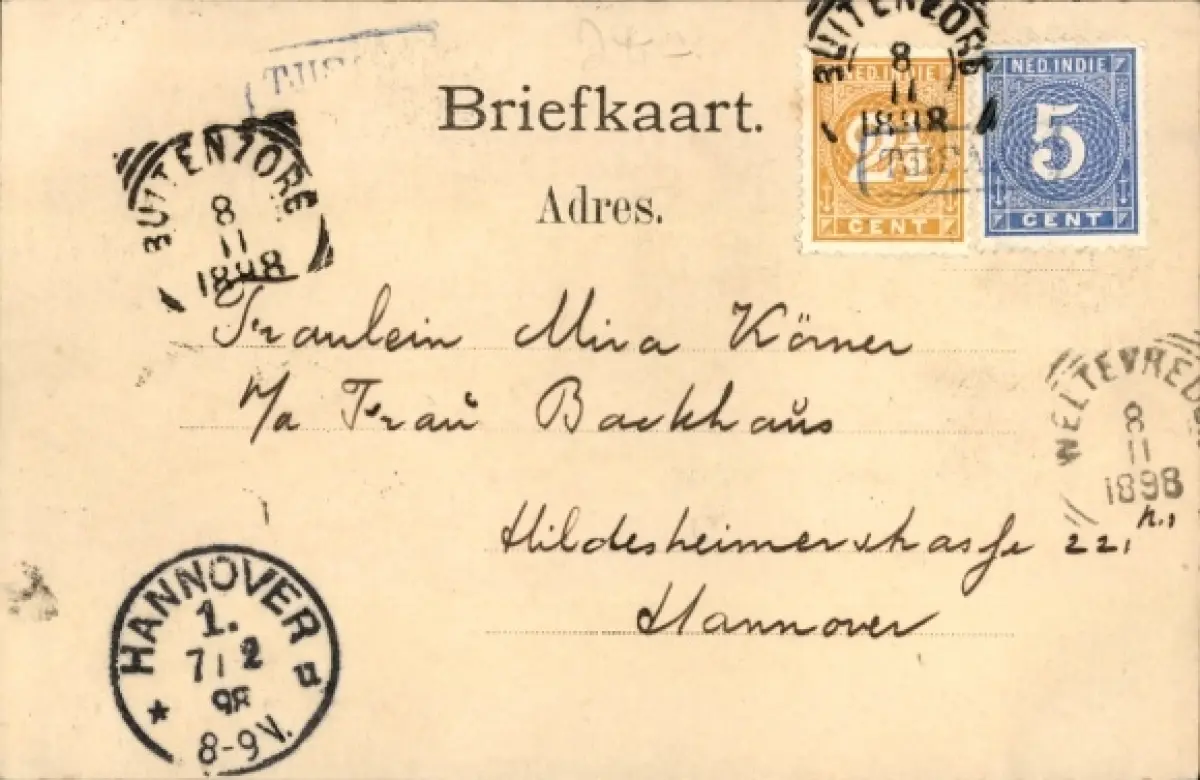 BUITENZORG
8
11
1898
NED.INDIE
2½
CENT
NED.INDIE
5
CENT
Briefkaart.
Adres.
BUITENZORG
8
11
1898
Fraulein Mira Körner
p/a Frau Backhaus
WELTEVREDEN
8
11
1898
Hildesheimerstrasse 221
Hannover
HANNOVER
1.
7 12
98
8-9V.